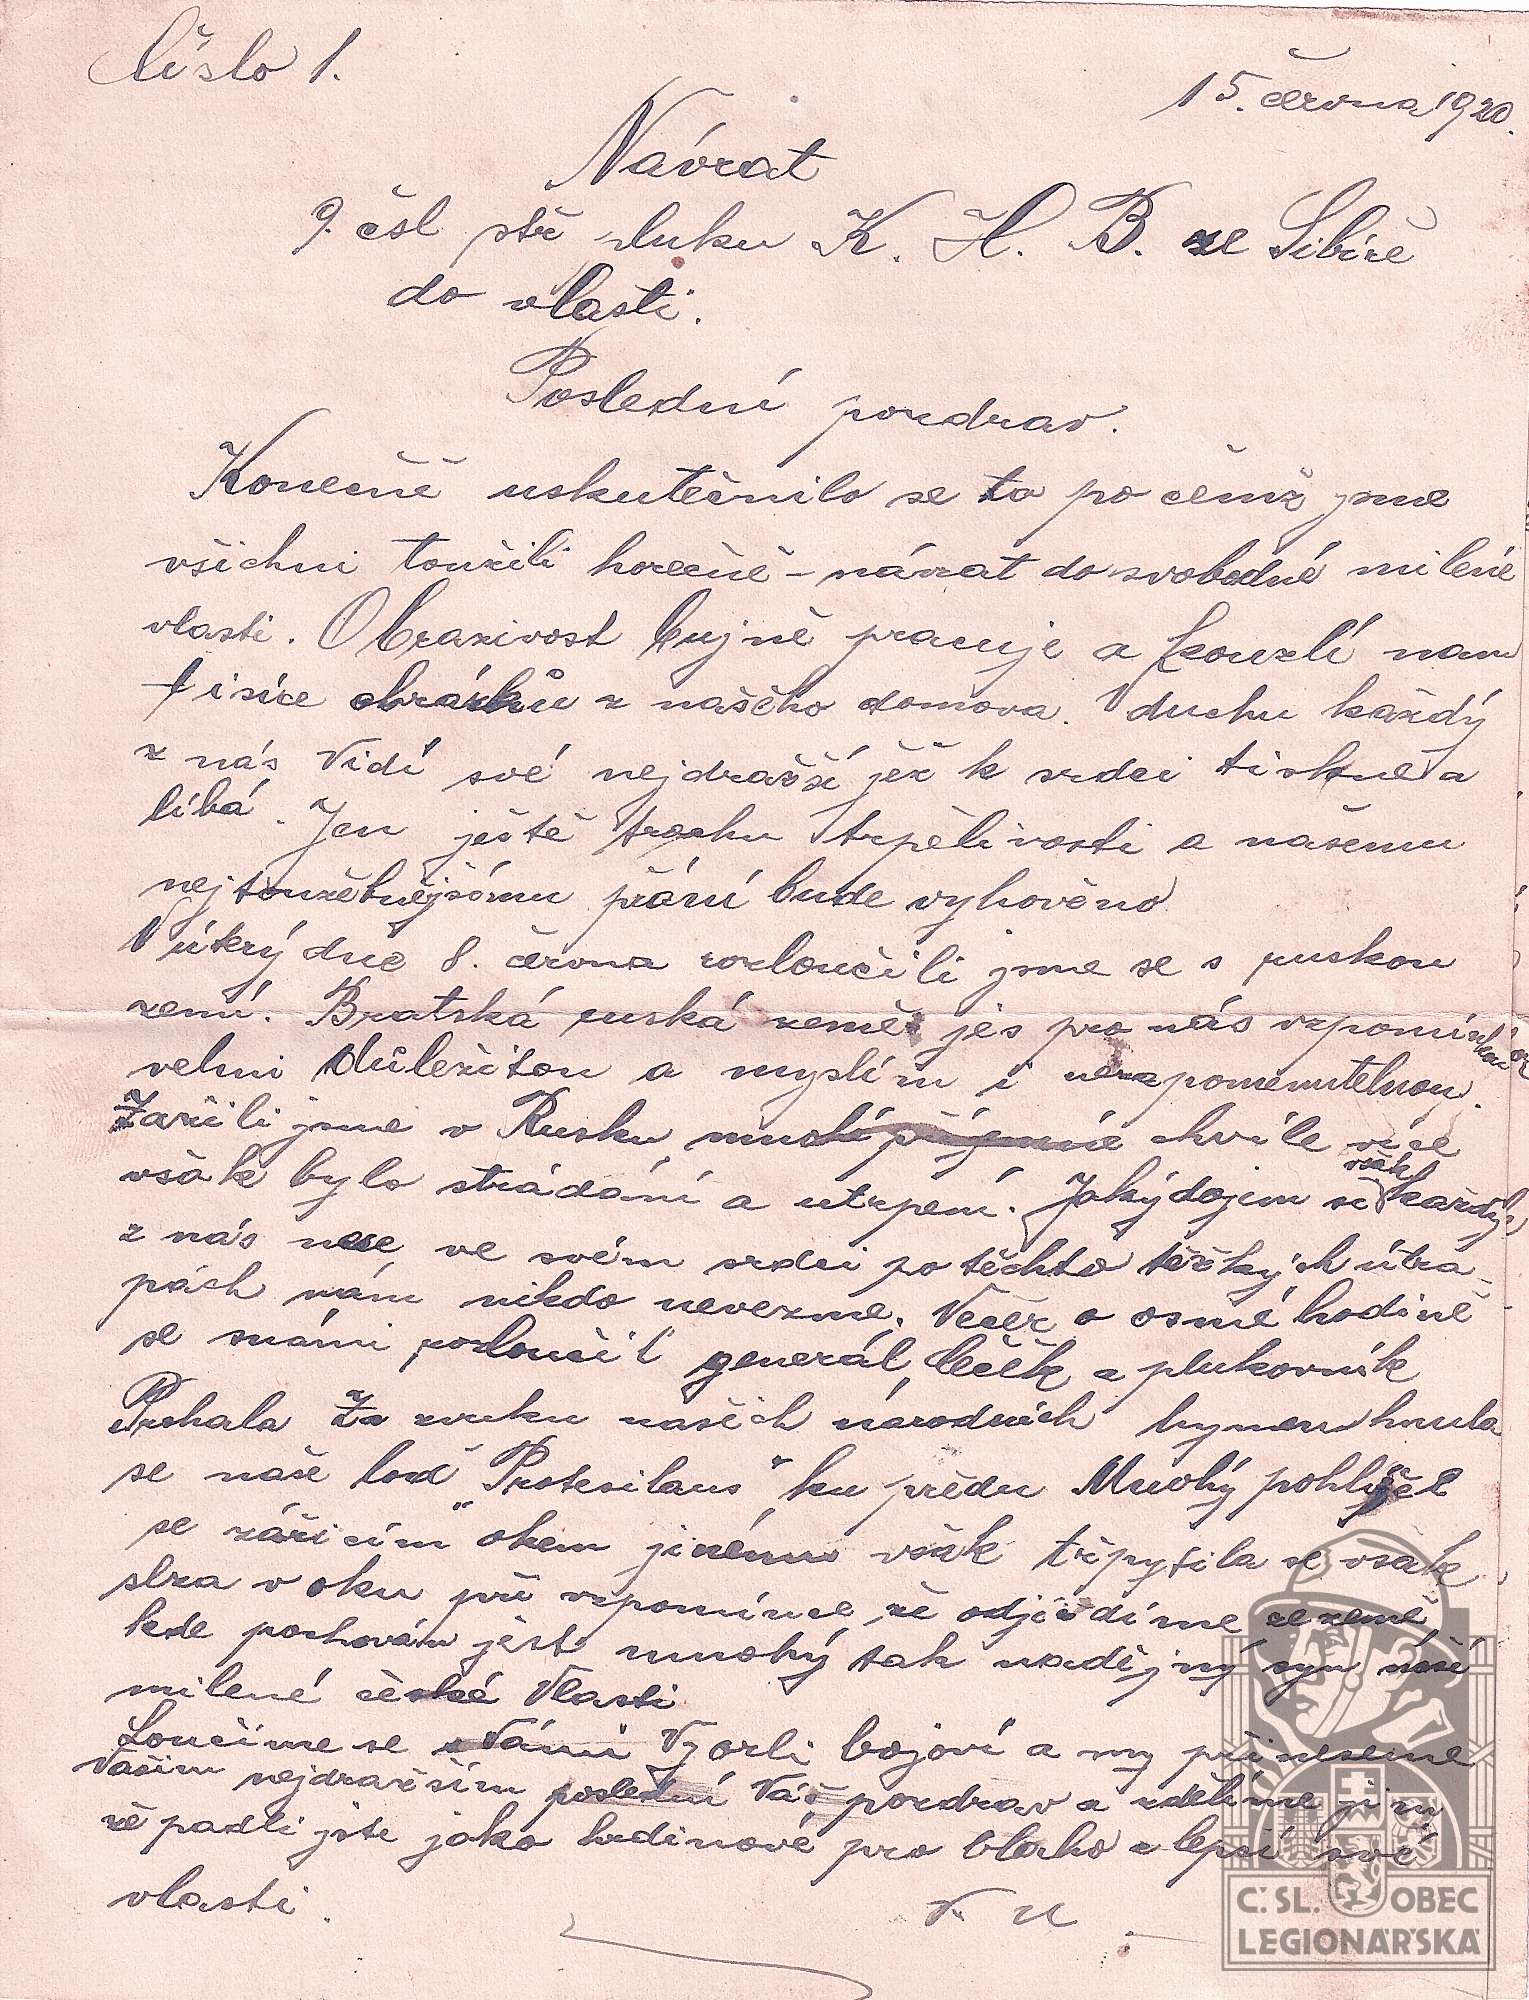 Číslo 1.
15. června 1920.
Návrat
9. čsl stř pluku K. H. B. ze Sibiře
do vlasti.
Poslední pozdrav.
Konečně uskutečnilo se to po čemž jsme
všichni toužili horečně – návrat do svobodné milené
vlasti. Obrazivost bujně pracuje a kouzlí nam
tisíce obrázků z našeho domova. V duchu každý
z nás vidí své nejdražší jež k srdci tiskne a
líbá. Jen ještě trochu trpělivosti a našemu
nejtoužebnějšímu přání bude vyhověno
V úterý dne 8. června rozloučili jsme se s ruskou
zemí. Bratská ruská země jes pro nás vzpomínkou
velmi důležitou a myslím i nezapomenutelnou.
Zažili jsme v Rusku mnohé příjemné chvíle více
však bylo strádání a utrpení. Jaký dojem si však každý
z nás nese ve svém srdci po těchto těžkých útra-
pách nám nikdo nevezme. Večer o osmé hodině
se snámi rozloučil generál Čeček a plukovník
Prchala Za zvuku našich národních hymen hnula
se naše loď "Protesilaus" ku předu Mnohý pohlížel
se zářicím okem jinému však třpytila se však
slza v oku při vzpomínce, že odjíždíme ze země,
kde pochován jest mnohý tak nadějný syn naší
milené české Vlasti
Loučíme se s Vámi Vy orli bojoví a my přineseme
Vašim nejdražším poslední Váš pozdrav a sdělíme jim
že padli jste jako hrdinové pro blaho a lepší své
vlasti.
Č.SL. OBEC
LEGIONÁŘSKÁ